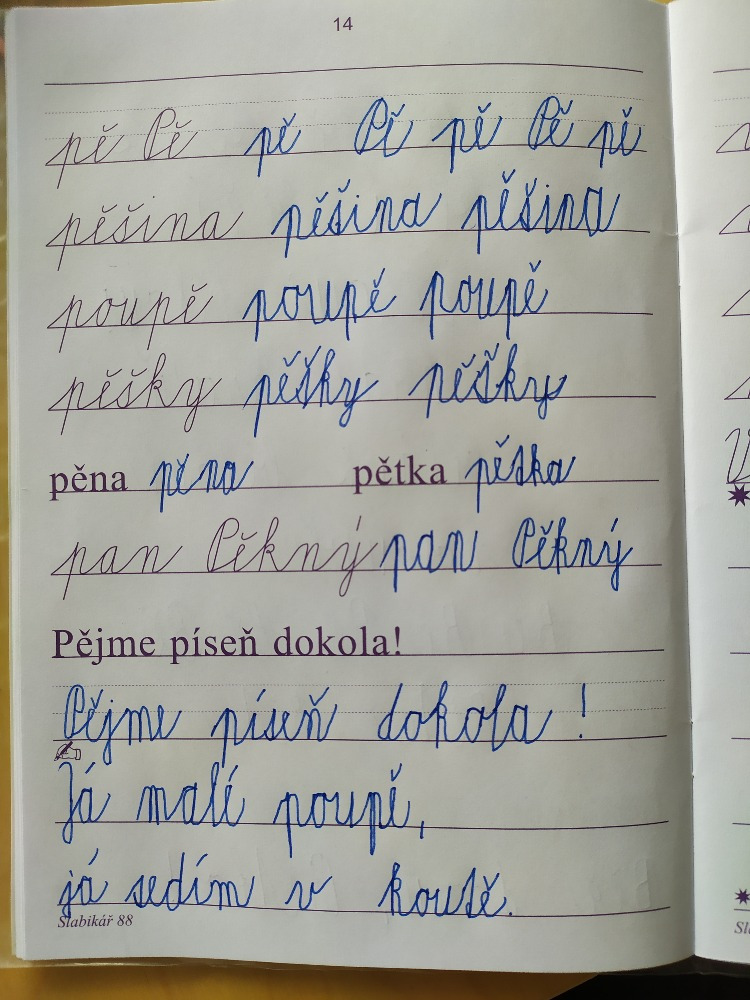 14
pě Pě pě Pě pě Pě pě
pěšina pěšina pěšina
poupě poupě poupě
pěšky pěšky pěšky
pěna pěna pětka pětka
pan Pěkný pan Pěkný
Pějme píseň dokola!
Pějme píseň dokola!
Já malé poupě,
já sedím v koutě.
Slabikář 88